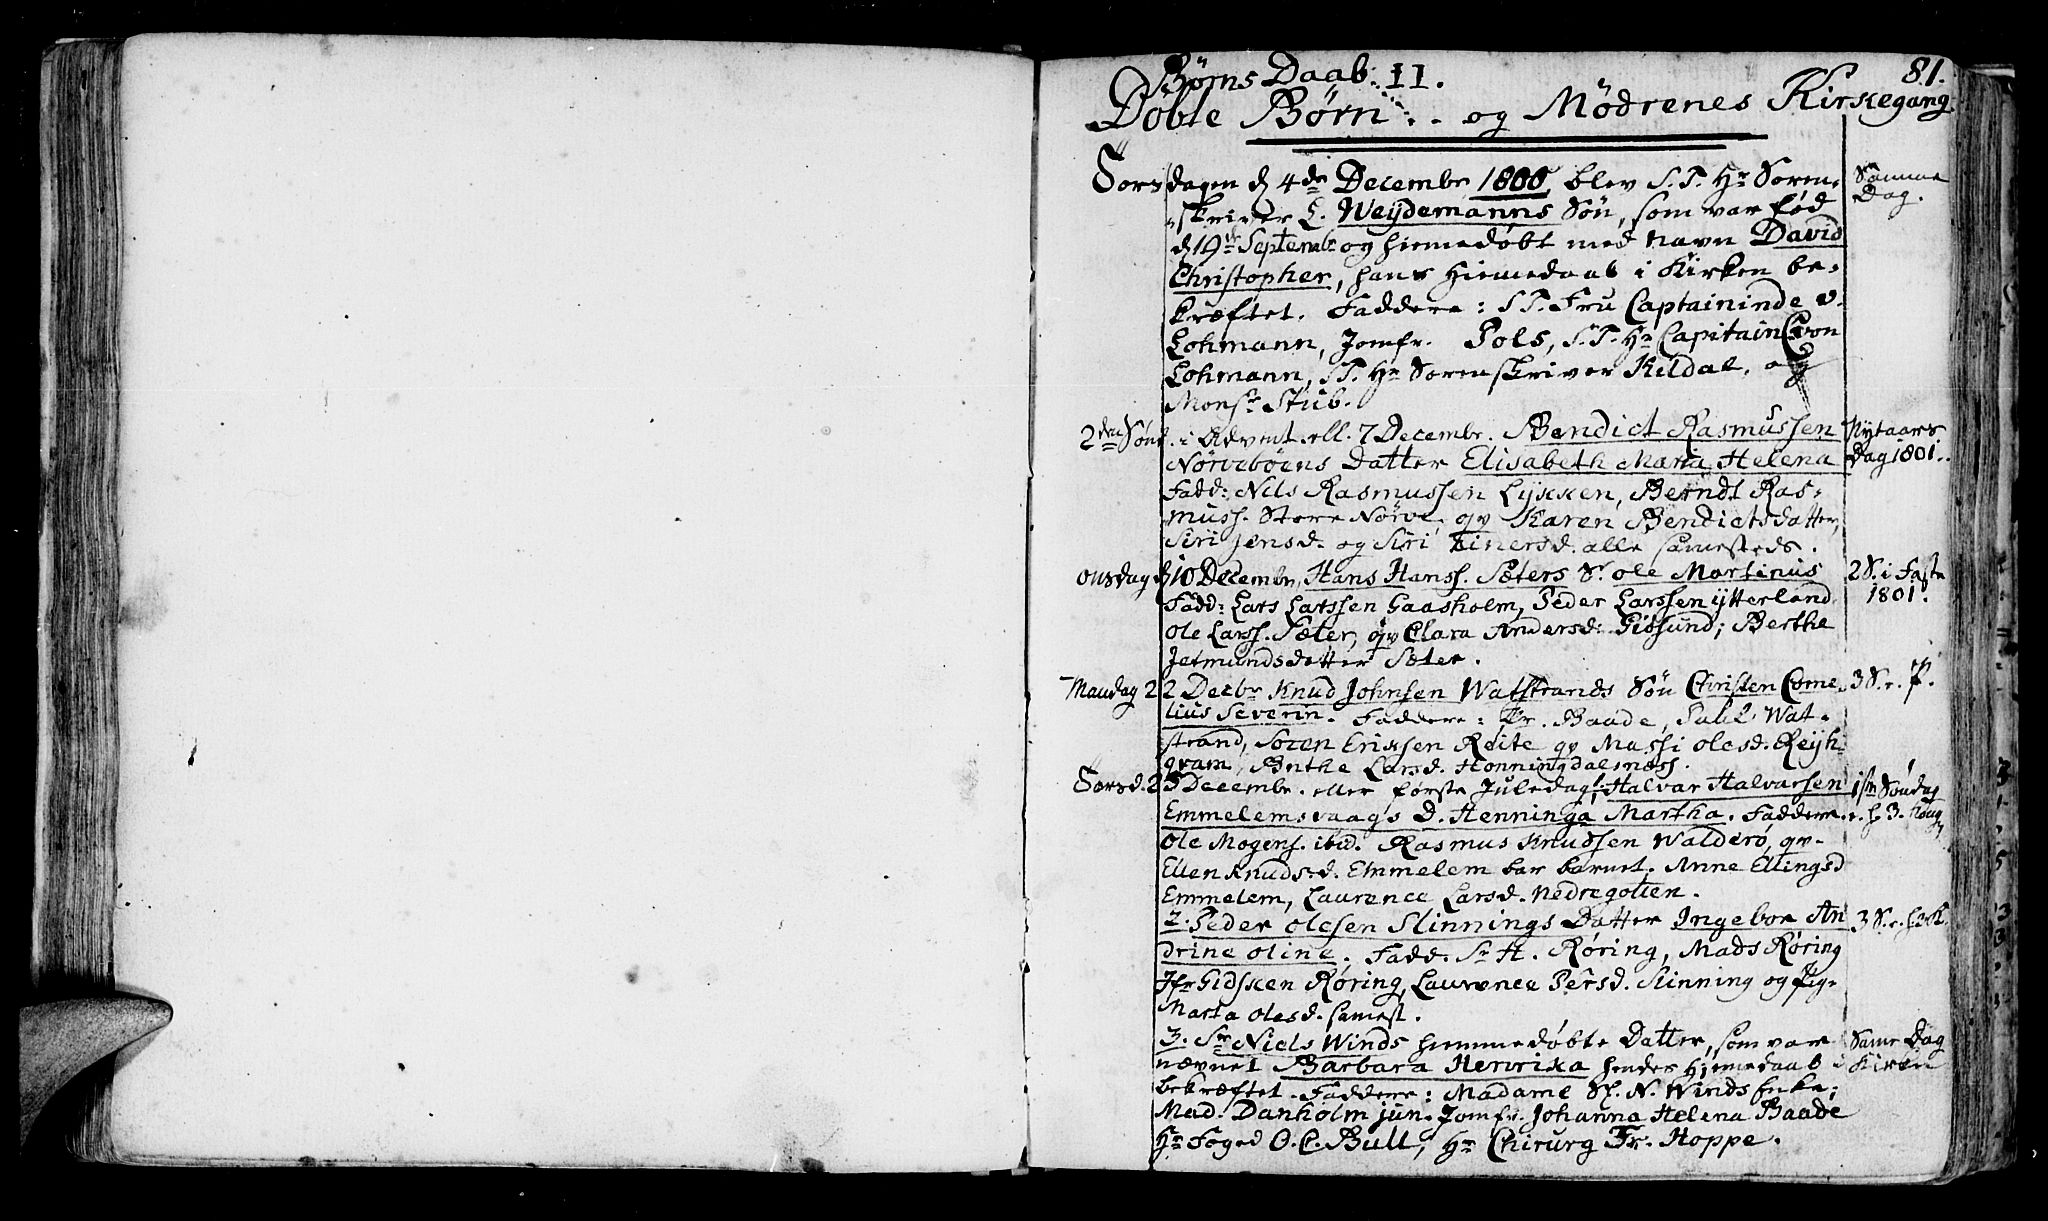 81.
Børns Daab. II.
Døbte Børn. og Mødrenes Kirkegang
Torsdagen d 4de Decembr 1800 blev S.T. Hr Soren- Samme
skriver L. Weydemanns Søn, som var fød Dag.
d 19de Septembr og hiemedøbt med navn David
Christopher, hans Hiemedaab i Kirken be-
kræftet. Faddere: S.T. Fru Captaininde v.
Lohmann, Jomfr. Pols, S.T. Hr Capitain von
Lohmann, S.T. Hr Sorenskriver Kildal, og
Monsr Stub.
2den Sønd. i Advent. ell. 7 Decembr. Bendict Rasmussen Nytaars
Nørvebøens Datter Elisabeth Maria Helena Dag 1801.
Fadd: Nils Rasmussen Lykken, Berndt Ras-
muss. Store Nørve, qv Karen Bendictsdatter,
Siri Jensd. og Siri Einersd. alle samesteds.
Onsdag d 10 Decembr, Hans Hanss. Sæters S. Ole Martinus 2 S. i Faste
Fadd: Lars Larssen Gaasholm, Peder Larssen Ytterland 1801.
Ole Larss. Sæter, qv Clara Andersd: Gidsund; Berthe
Jetmundsdatter Sæter.
Mandag 22 Decbr Knud Johnsen Watstrands Søn Christen Corne- 3 S. r. P.
lius Severin. Faddere: Pr. Baade, Wat-
strand, Soren Erixsen Reite qv Massi Olesd.
gram, Berthe Larsd. Honningdalsness.
Torsd. 25 Decembr. eller første Juledag 1. Halvar Halvarsen 1ste Søndag
Emmelemsvaags D. Henninga Martha. Faddere
Ole Mogens. ibid. Rasmus Knudssen Walderø, qv-
Ellen Knudsd. Emmelem bar barnet. Anne Ellingsd
Emmelem, Laurence Larsd. Nedregotten.
2. Peder Olesen Slinnings Datter Ingebor An
drine Oline. Fadd. Sr H. Røring, Mads Røring
Jfr Gidsken Røring, Laurence Persd. Slinning og Pig-
Marta Olesd. samest.
3. Sr Niels Winds hiemmedøbte Datter, som var Same Dag
nævnet Barbara Henrixa hendes Hjemedaab i Kirken
bekræftet. Faddere: Madame Sl. N. Winds Enke;
Mad. Danholm jun. Jomfr. Johanna Helena Baade
Hr Foged O.C. Bull, Hr Chirurg Fr. Hoppe.